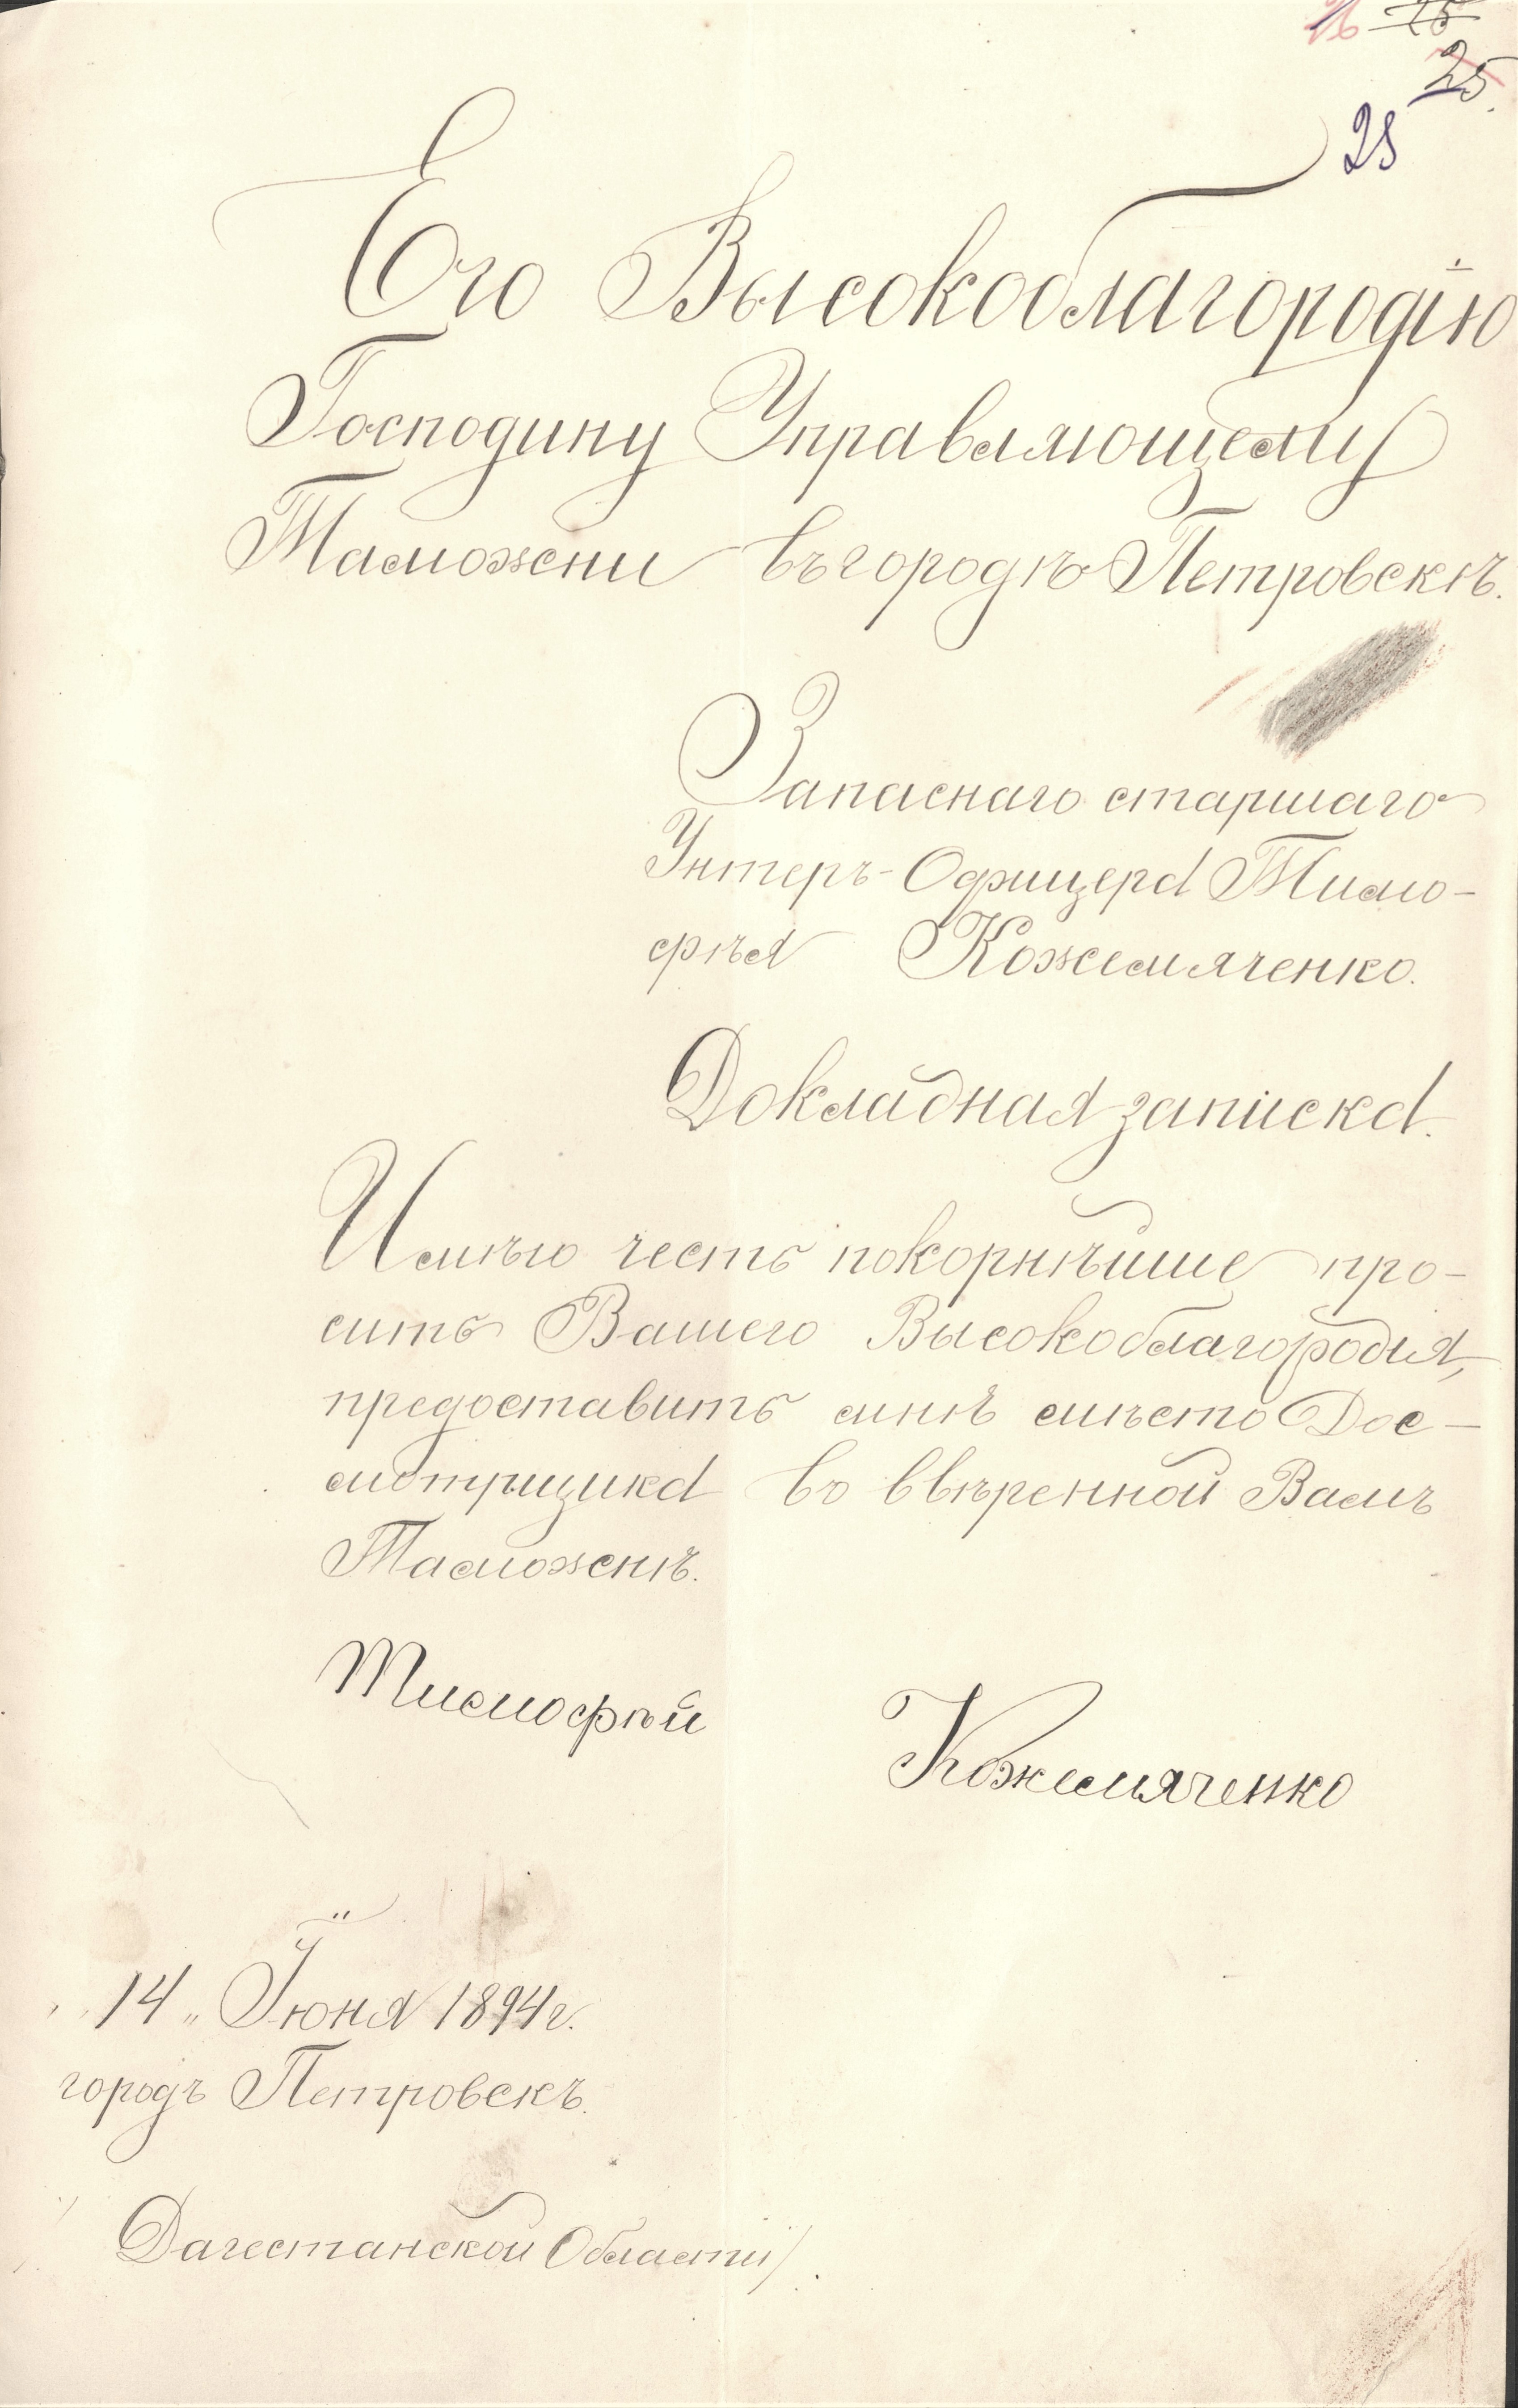 26 25
25.
25
Его Высокоблагородію
Господину Управляющему
Таможни въ городѣ Петровскѣ.
Запаснаго старшаго
Унтеръ-Офицера Тимо-
фѣя Кожемяченко.
Докладная записка.
Имѣю честь покорнѣйше про-
сить Вашего Высокоблагородія,
предоставить мнѣ мѣсто Дос-
мотрщика во ввѣренной Вамъ
Таможнѣ.
Тимофѣй
Кожемяченко
"14" Іюня 1894 г.
городъ Петровскъ.
Дагестанской Области/.